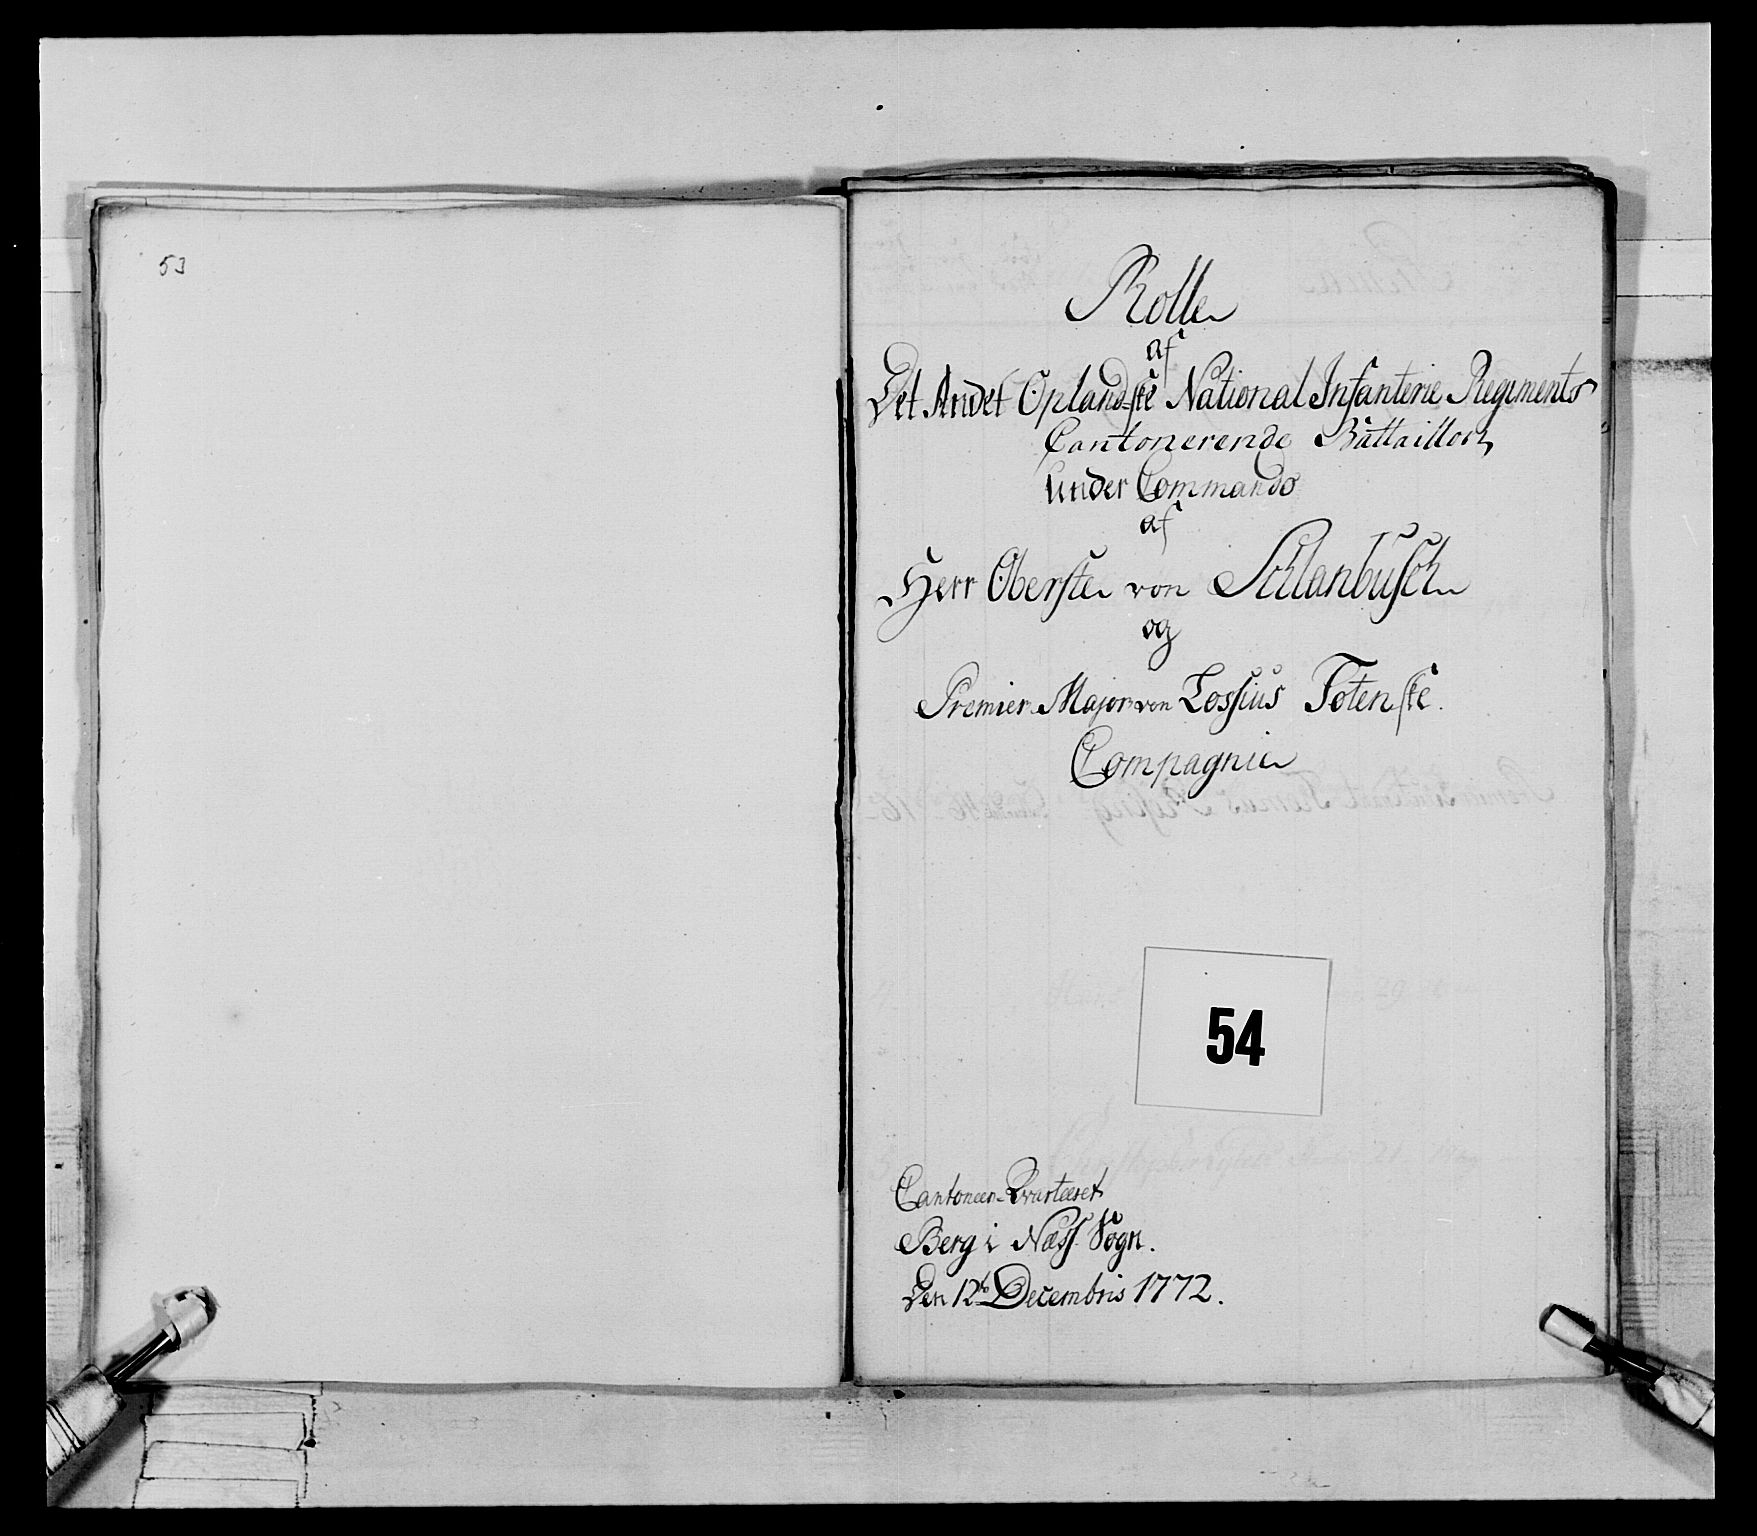 53
Rolle
af
Det Andet Oplandske National Infanterie Regiments
Cantonerende Battaillon
under Commando
af
Herr Oberste von Schlanbusch
og
Premier-Major von Lossius Totenske
Compagnie
54
Cantoneer-Qvarteret
Berg i Næss Sogn.
Den 12te Decembris 1772.